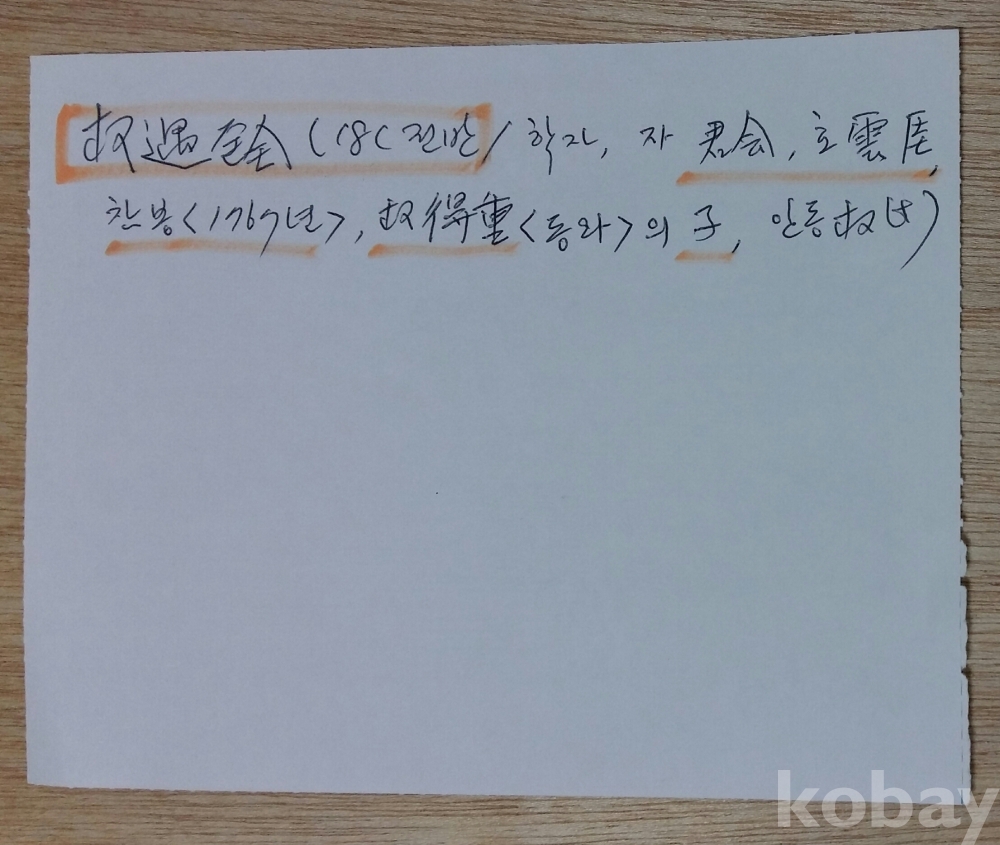 权遇全会 (18C 전반/ 학자, 자 君会, 호 雲厓,
찬봉<1767년>, 权得重<동와>의 子, 안동权氏)
kobay